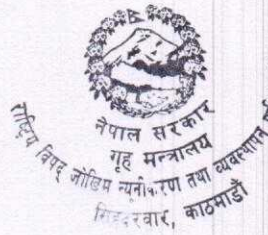 नेपाल सरकार
गृह मन्त्रालय
राष्ट्रिय विपद् जोखिम न्यूनीकरण तथा व्यवस्थापन
काठमाडौं